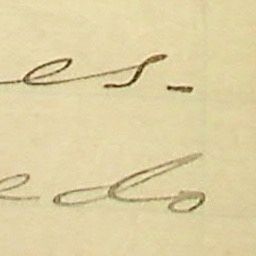 es-
edo